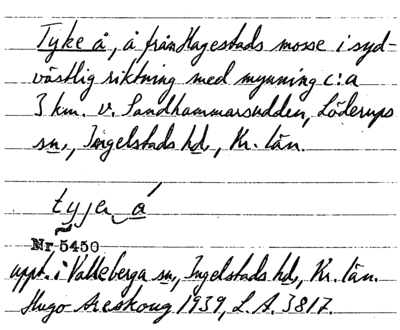 Tyke å, å från Hagestads mosse i syd-
västlig riktning med mynning c:a
3 km. v. Sandhammarsudden, Löderups
sn., Ingelstads hd., Kr. län.
tyjε å
Nr 5450
uppt. i Valleberga sn., Ingelstads hd., Kr. län.
Hugo Areskoug 1939, L.A. 3817.